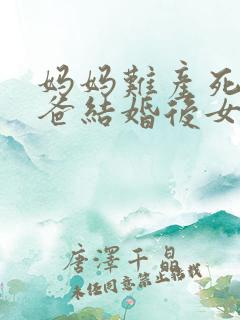 妈妈難產死
爸結婚後女
唐澤千晶
未经同意禁止转载